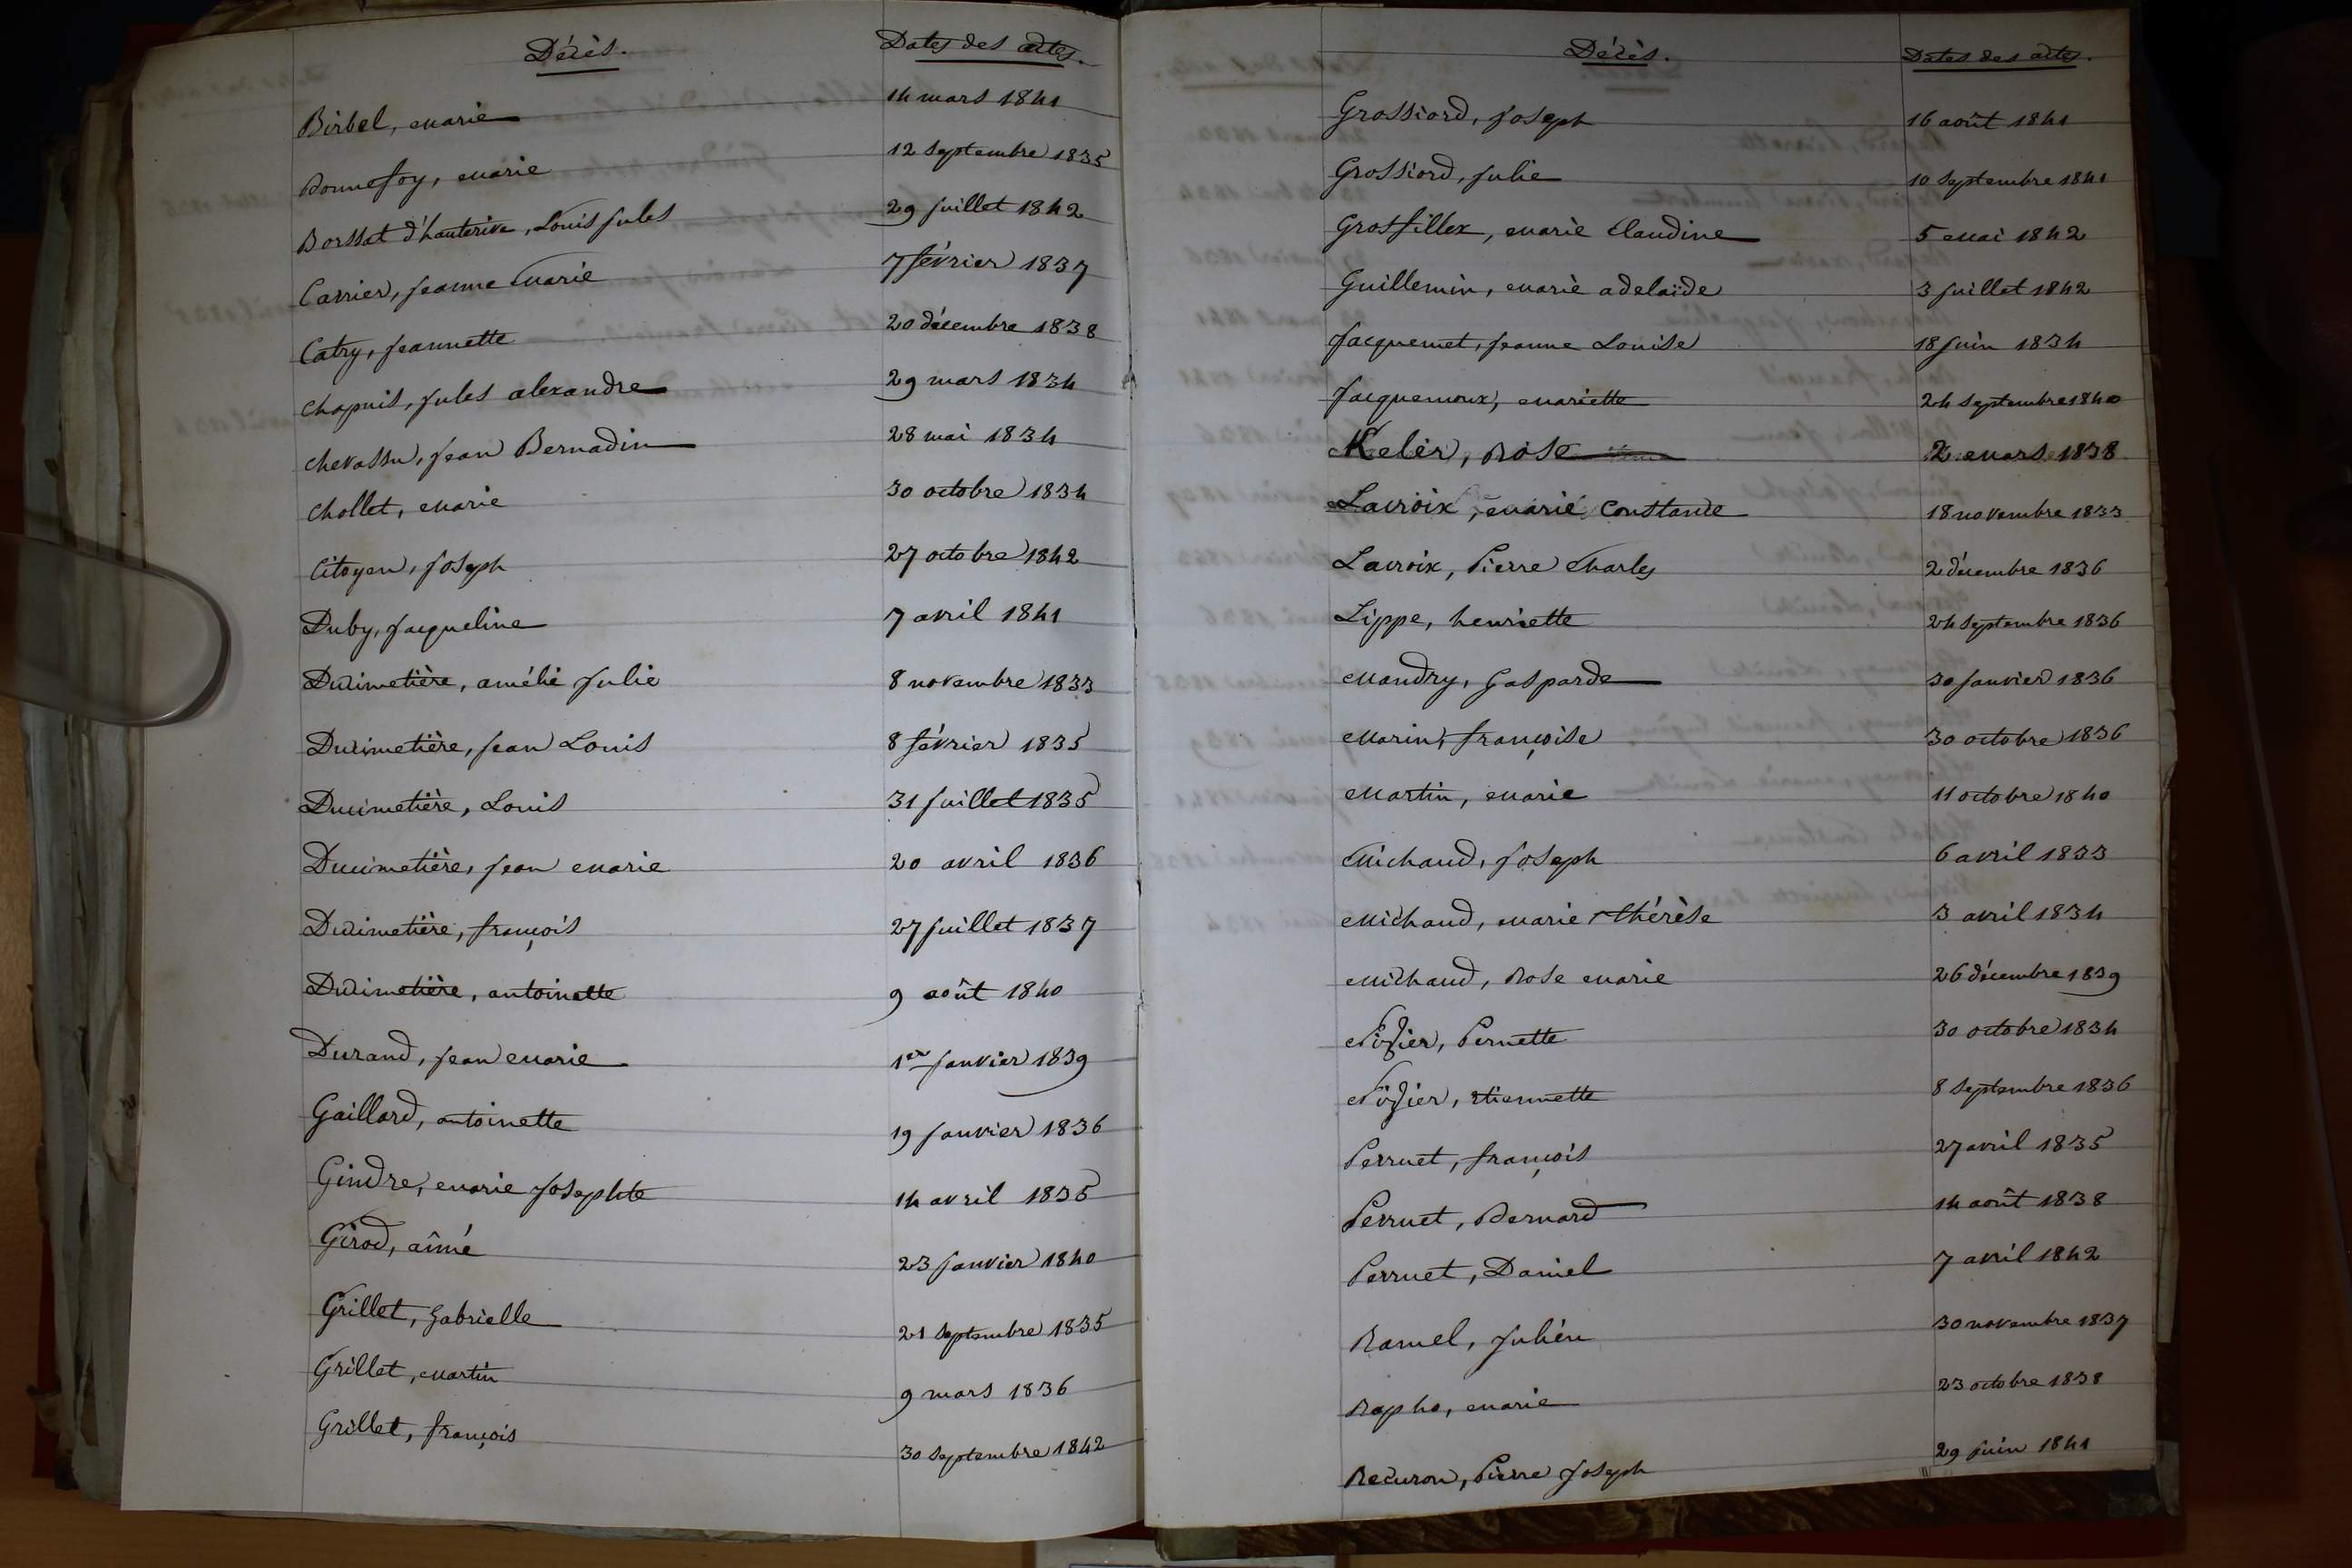 Décès. Dates des actes.
Birbel, marie 14 mars 1841
Bonnefoy, marie 12 septembre 1835
Borssat d'hauterive, Louis Jules 29 juillet 1842
Carrier, Jeanne Marie 7 février 1837
Catry, Jeannette 20 décembre 1838
Chapuis, Jules alexandre 29 mars 1834
Chevassu, Jean Bernadin 28 mai 1834
Chollet, marie 30 octobre 1834
Citoyen, Joseph 27 octobre 1842
Duby, Jacqueline 7 avril 1841
Ducimetière, amélie Julie 8 novembre 1833
Ducimetière, Jean Louis 8 février 1835
Ducimetière, Louis 31 juillet 1835
Ducimetière, Jean marie 20 avril 1836
Ducimetière, françois 27 juillet 1837
Ducimetière, antoinette 9 août 1840
Durand, Jean marie 1er janvier 1839
Gaillard, antoinette 19 janvier 1836
Gindre, marie Josephte 14 avril 1835
Girod, aimé 23 janvier 1840
Grillet, Gabrielle 21 septembre 1835
Grillet, martin 9 mars 1836
Grillet, françois 30 septembre 1842
Décès. Dates des actes.
Grossiord, Joseph 16 août 1841
Grossiord, Julie 10 septembre 1841
Grosfillex, marie Claudine 5 mai 1842
Guillemin, marie adelaïde 3 juillet 1842
Jacquemet, Jeanne Louise 18 juin 1834
Jacquemoux, mariette 24 septembre 1840
Keler, Rose 2 mars 1838
Lacroix, marie Constance 18 novembre 1833
Lacroix, Pierre Charles 2 décembre 1836
Lippe, henriette 24 septembre 1836
Mandry, Gasparde 30 janvier 1836
Marin, françoise 30 octobre 1836
Martin, marie 11 octobre 1840
Michaud, Joseph 6 avril 1833
Michaud, marie thérèse 3 avril 1834
Michaud, Rose marie 26 décembre 1839
Nizier, Pernette 30 octobre 1834
Nizier, étiennette 8 septembre 1836
Perruet, françois 27 avril 1835
Perruet, Bernard 14 août 1838
Perruet, Daniel 7 avril 1842
Ramel, Julien 30 novembre 1837
Rapho, marie 23 octobre 1838
Recuron, Pierre Joseph 29 juin 1841